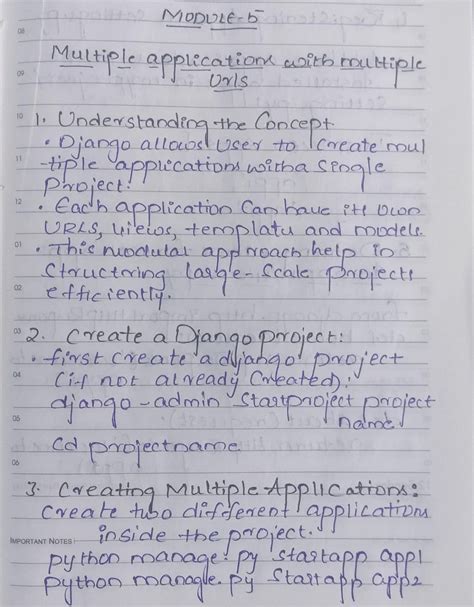 MODULE-5
08
Multiple applications with multiple
09
Urls
10
1. Understanding the Concept
• Django allows User to create mul
11
-tiple applications with a Single
Project.
12
• Each application Can have its own
URLS, views, templates and models.
01
• This modular approach help in
Structoring large-Scale Projects
02
efficiently.
03
2. Create a Django project:
• first create a django project
04
(if not already Created):
django-admin startproject project
05
name
cd projectname
06
3. Creating Multiple Applications:
Create two different applications
IMPORTANT NOTES:
inside the project.
python manage. py startapp app1
python manage. py Startapp app2